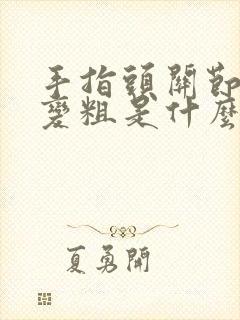 手指頭關節
變粗是什麼
夏勇開